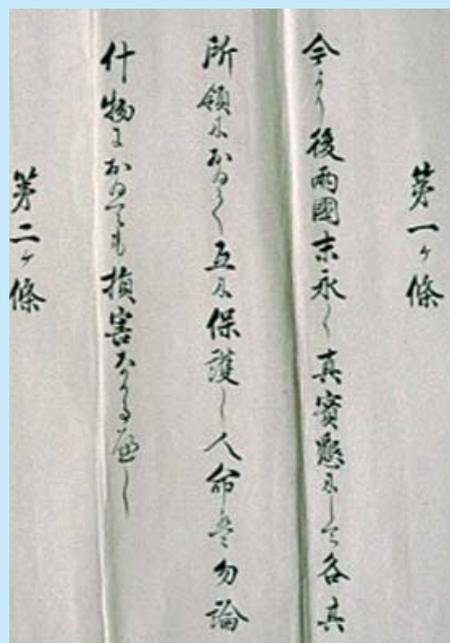 第一ヶ條
今より後兩國末永く真實懇にして各其
所領におゐて互に保護し人命は勿論
什物におゐても損害なかるへし
第二ヶ條